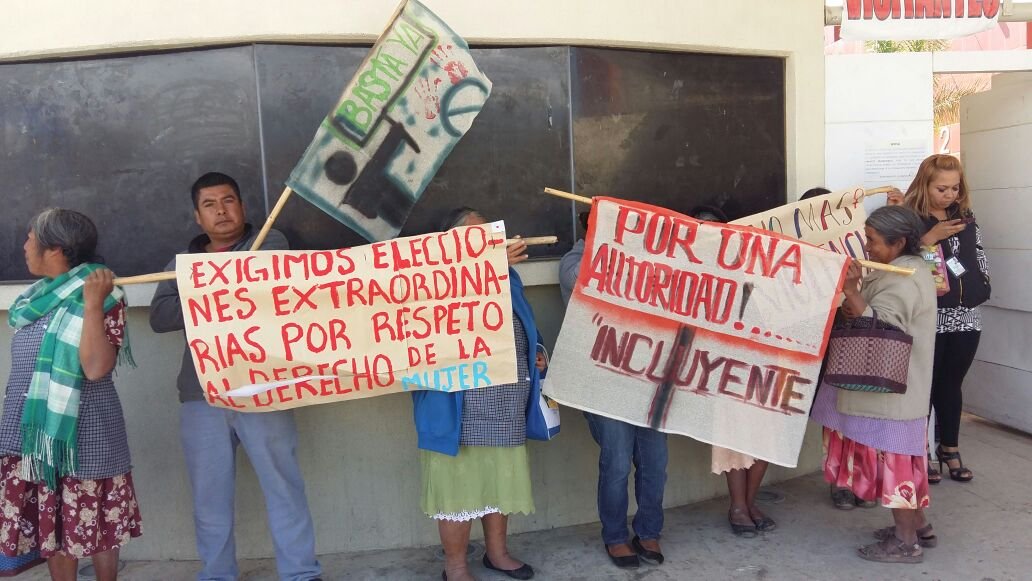 VISITANTES
BASTA YA
EXIGIMOS ELECCIO-
NES EXTRAORDINA-
RIAS POR RESPETO
AL DERECHO DE LA
MUJER
POR UNA
AUTORIDAD!......
"INCLUYENTE
NO MAS
2